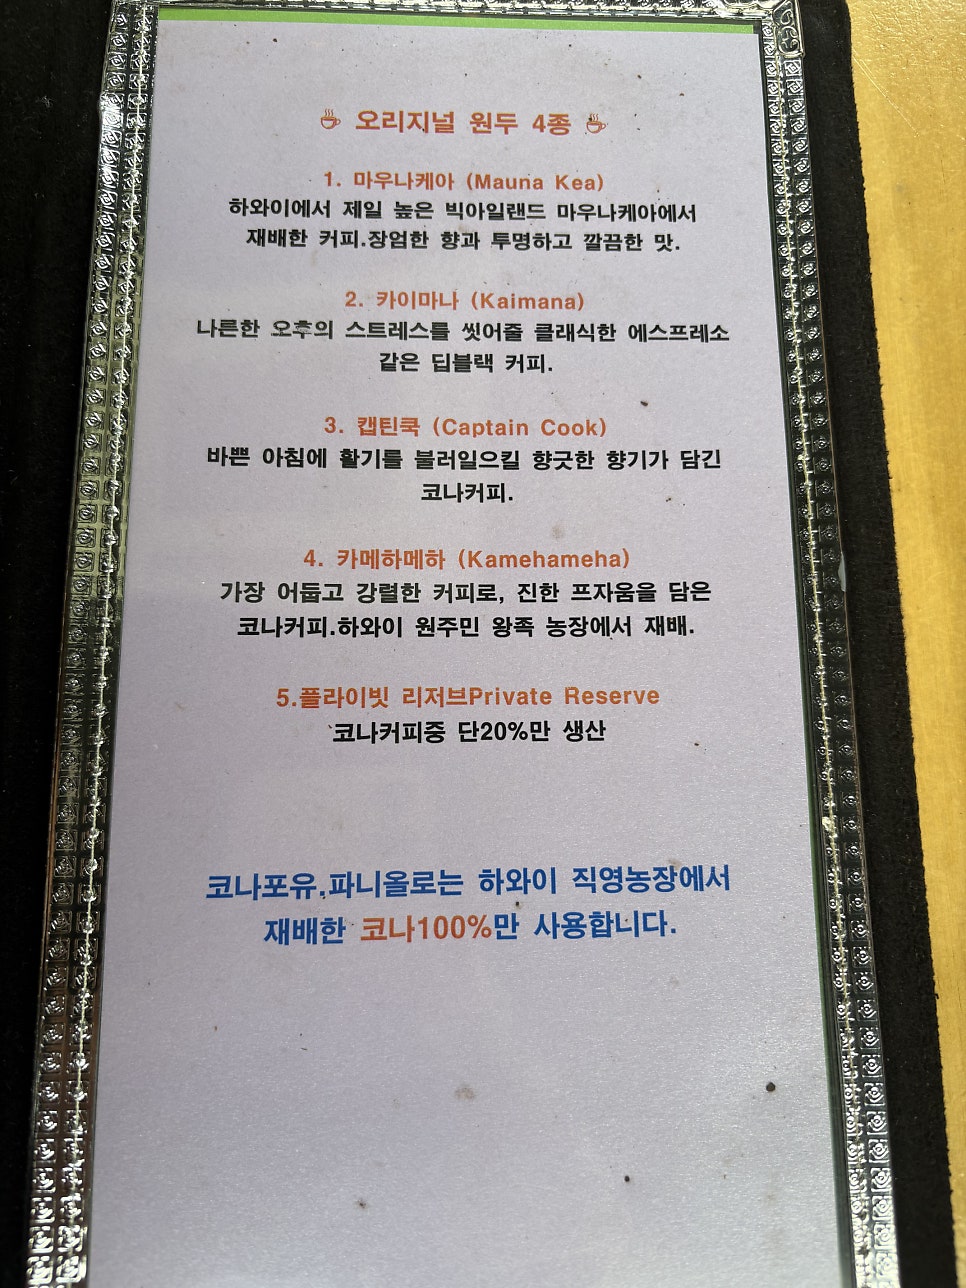 오리지널 원두 4종
1. 마우나케아 (Mauna Kea)
하와이에서 제일 높은 빅아일랜드 마우나케아에서
재배한 커피.장엄한 향과 투명하고 깔끔한 맛.
2. 카이마나 (Kaimana)
나른한 오후의 스트레스를 씻어줄 클래식한 에스프레소
같은 딥블랙 커피.
3. 캡틴쿡 (Captain Cook)
바쁜 아침에 활기를 불러일으킬 향긋한 향기가 담긴
코나커피.
4. 카메하메하 (Kamehameha)
가장 어둡고 강렬한 커피로, 진한 프자움을 담은
코나커피.하와이 원주민 왕족 농장에서 재배.
5.플라이빗 리저브Private Reserve
코나커피중 단20%만 생산
코나포유.파니올로는 하와이 직영농장에서
재배한 코나100%만 사용합니다.